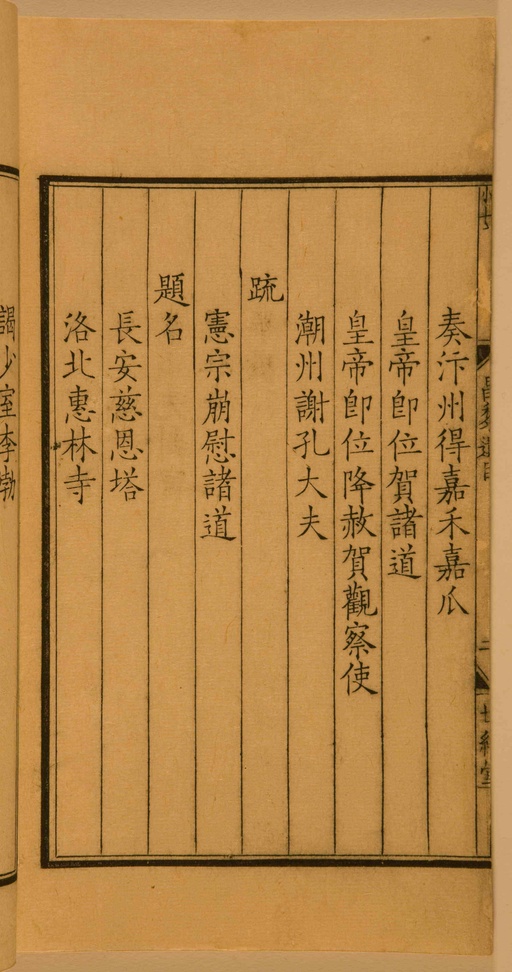 奏汴州得嘉禾嘉瓜
皇帝卽位賀諸道
皇帝卽位降赦賀觀察使
潮州謝孔大夫
疏
憲宗崩慰諸道
題名
長安慈恩塔
洛北惠林寺
謁少室李渤